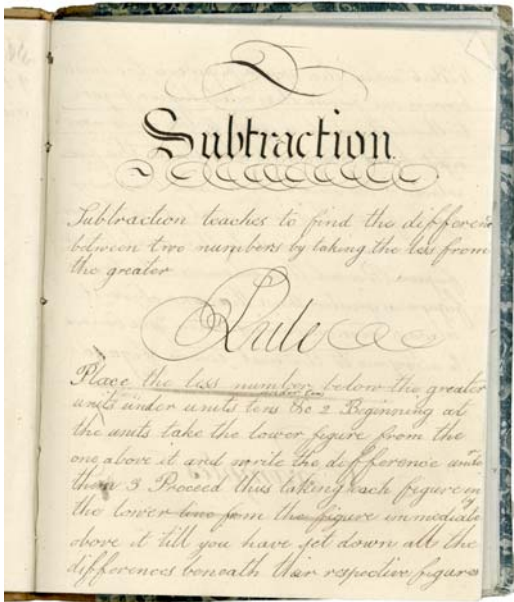 Subtraction.
Subtraction teaches to find the differenc
between two numbers by taking the less from
the greater
Rule
Place the less number below the greater
units under units tens &c 2 Beginning at
the units take the lower figure from the
one above it and write the defference unde
them 3 Proceed thus taking each figure in
the lower line from the figure immediatly
above it till you have set down all the
differences beneath their respective figures